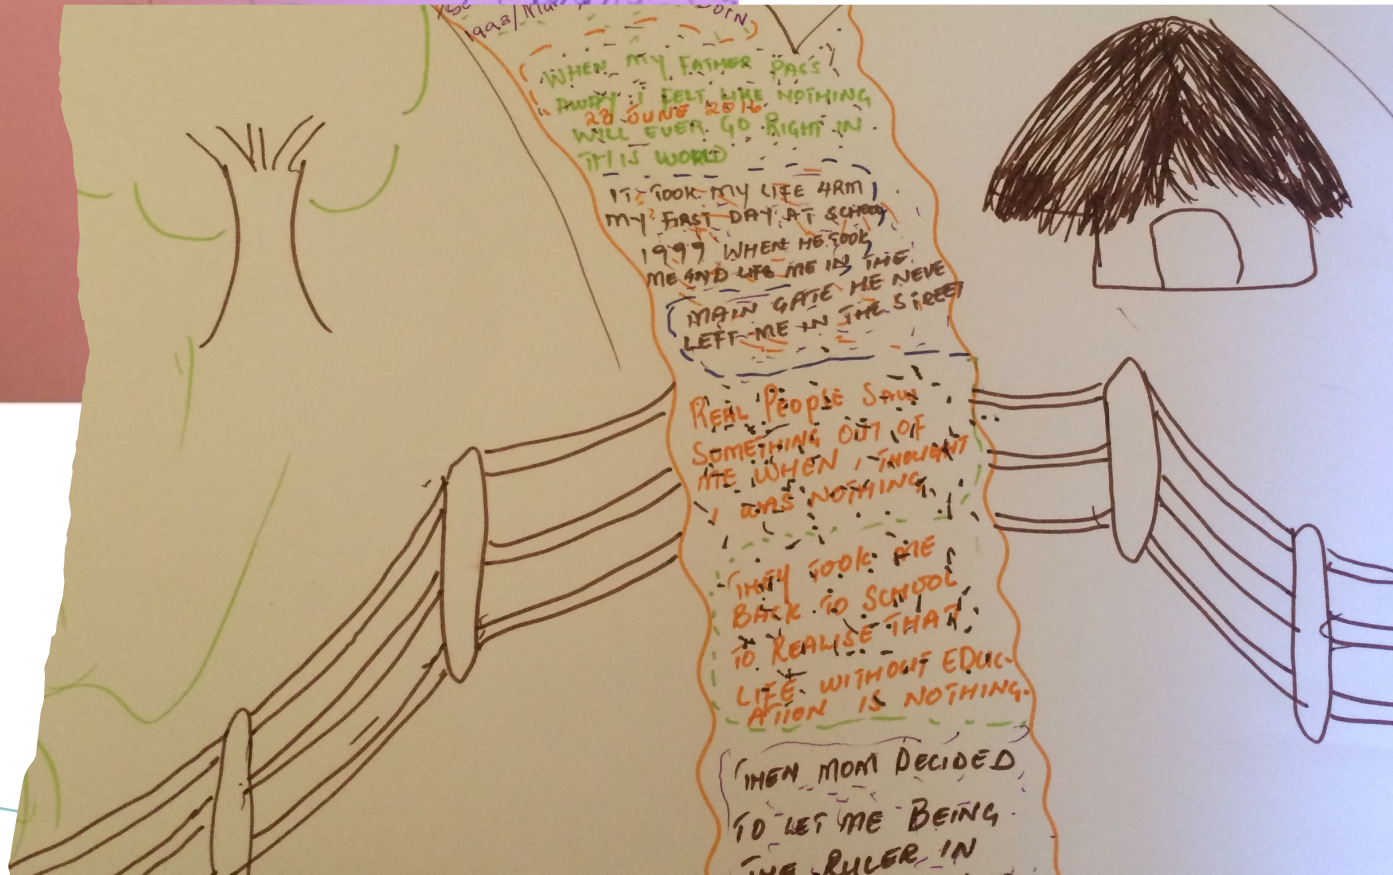 1998/
WHEN MY FATHER PASS
AWAY I FELT LIKE NOTHING
28 JUNE 2016
WILL EVER GO RIGHT IN
THIS WORLD
IT TOOK MY LIFE 4RM
MY FIRST DAY AT SCHOOL
1999 WHEN HE TOOK
ME AND ME IN THE
MAIN GATE HE NEVE
LEFT ME IN THE STREET
REAL PEOPLE SAW
SOMETHING OUT OF
ME WHEN I THOUGHT
I WAS NOTHING
THEY TOOK ME
BACK TO SCHOOL
TO REALISE THAT
LIFE WITHOUT EDUC-
ATION IS NOTHING.
THEN MOM DECIDED
TO LET ME BEING
THE RULER IN